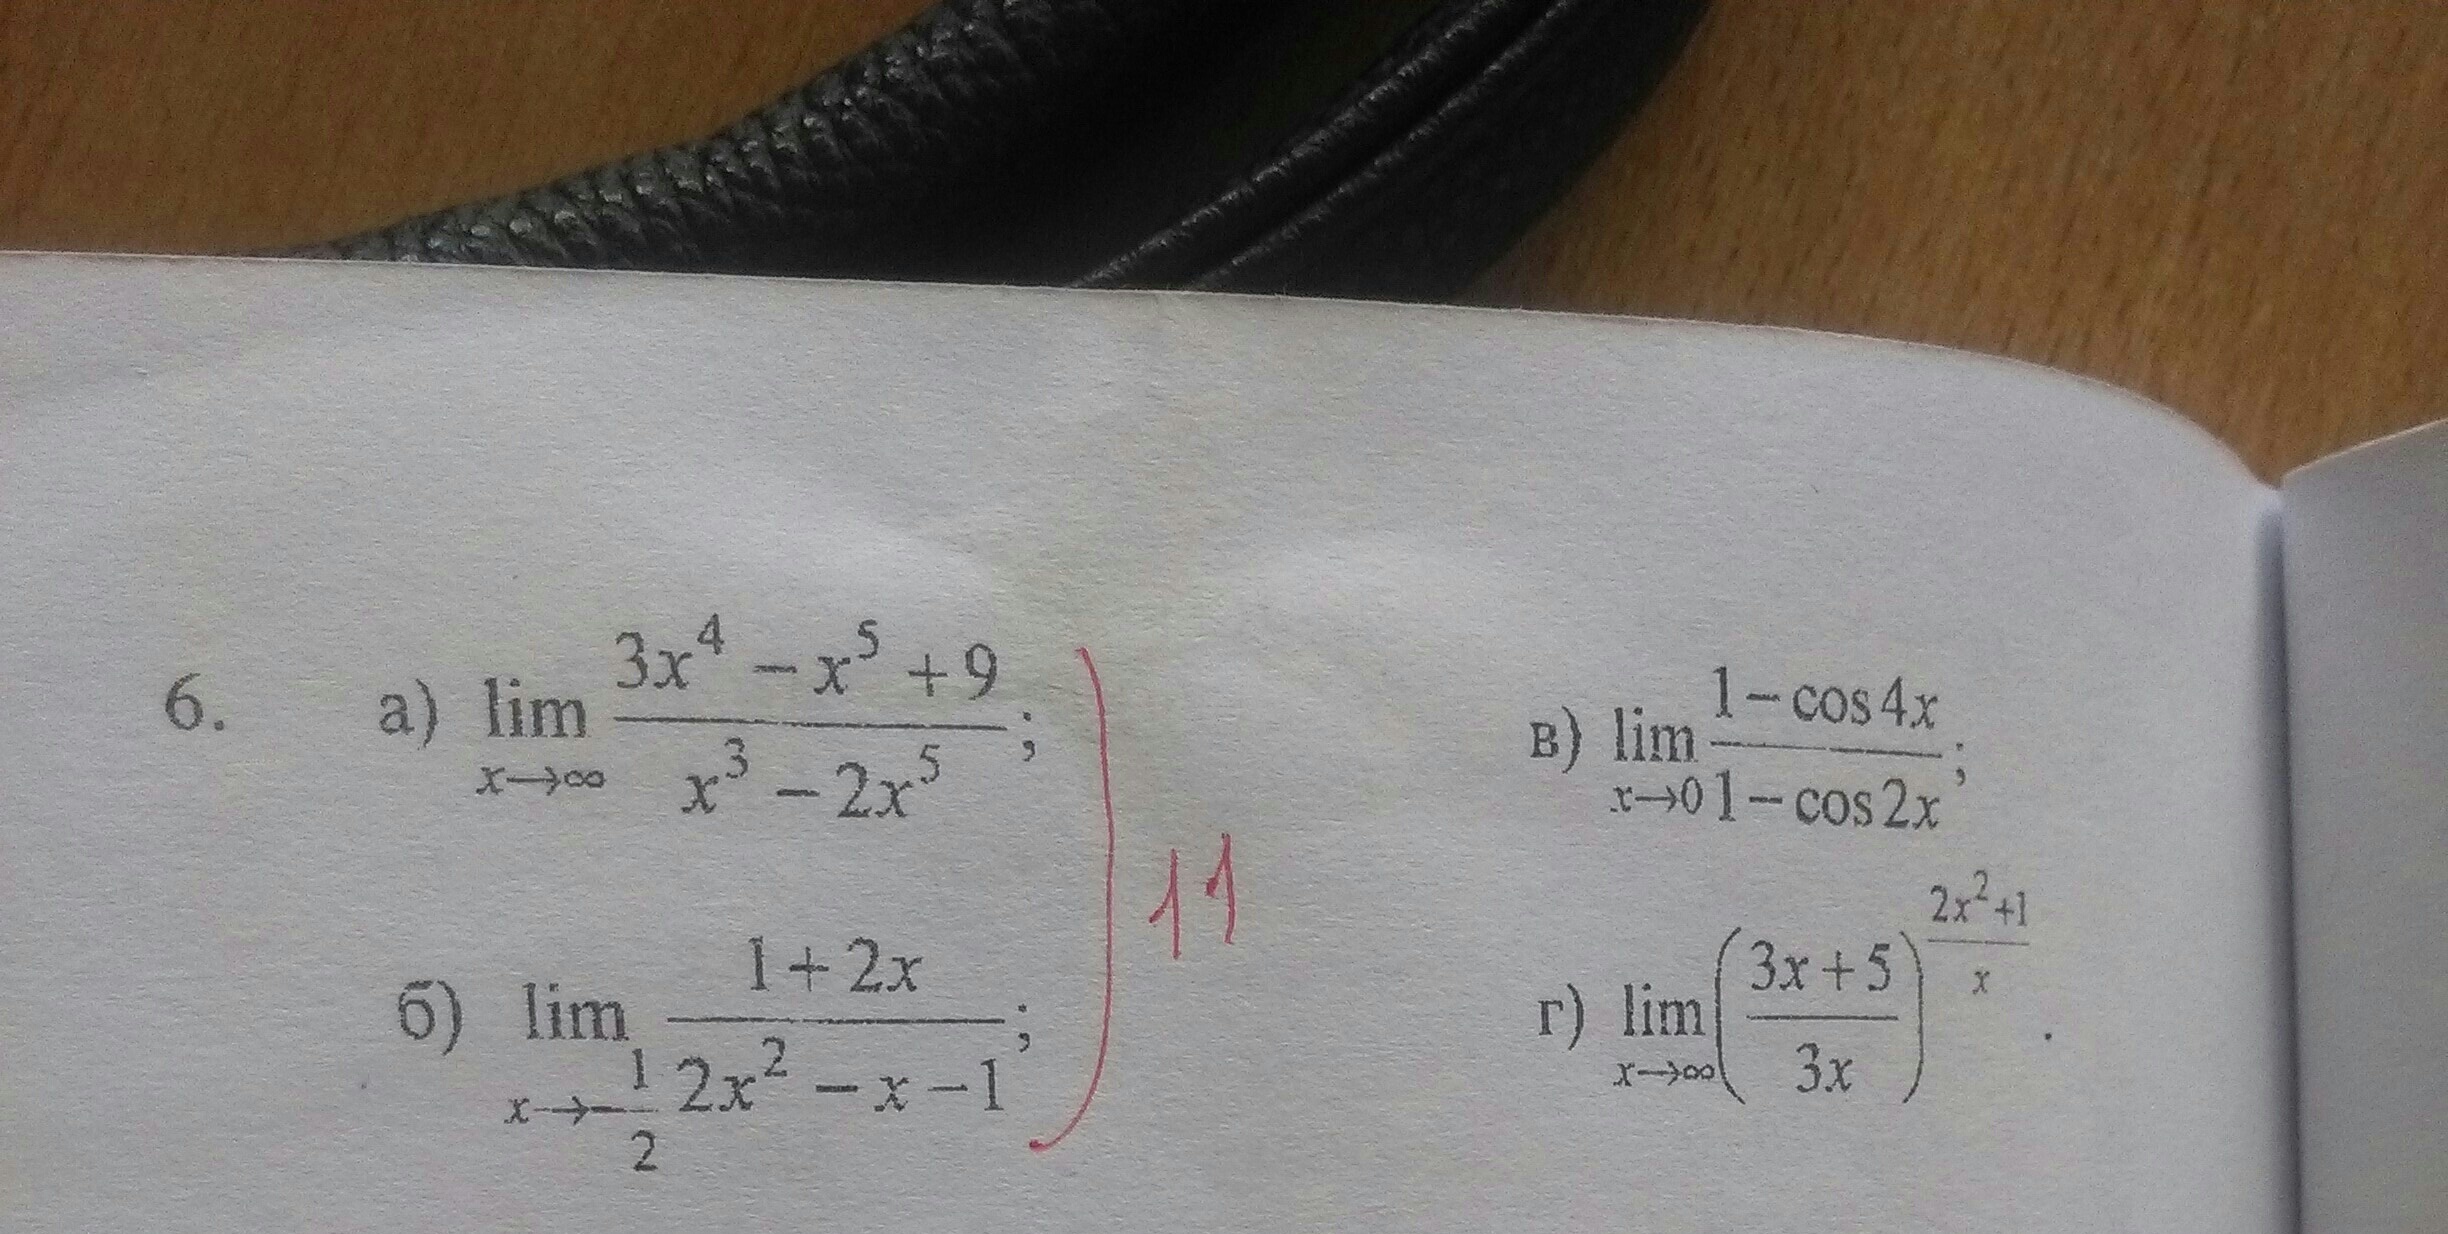 6. а) lim x→∞ (3x⁴ − x⁵ + 9)/(x³ − 2x⁵);
б) lim x→−1/2 (1 + 2x)/(2x² − x − 1);
11
в) lim x→0 (1 − cos 4x)/(1 − cos 2x);
г) lim x→∞ ((3x + 5)/(3x))^((2x²+1)/x).